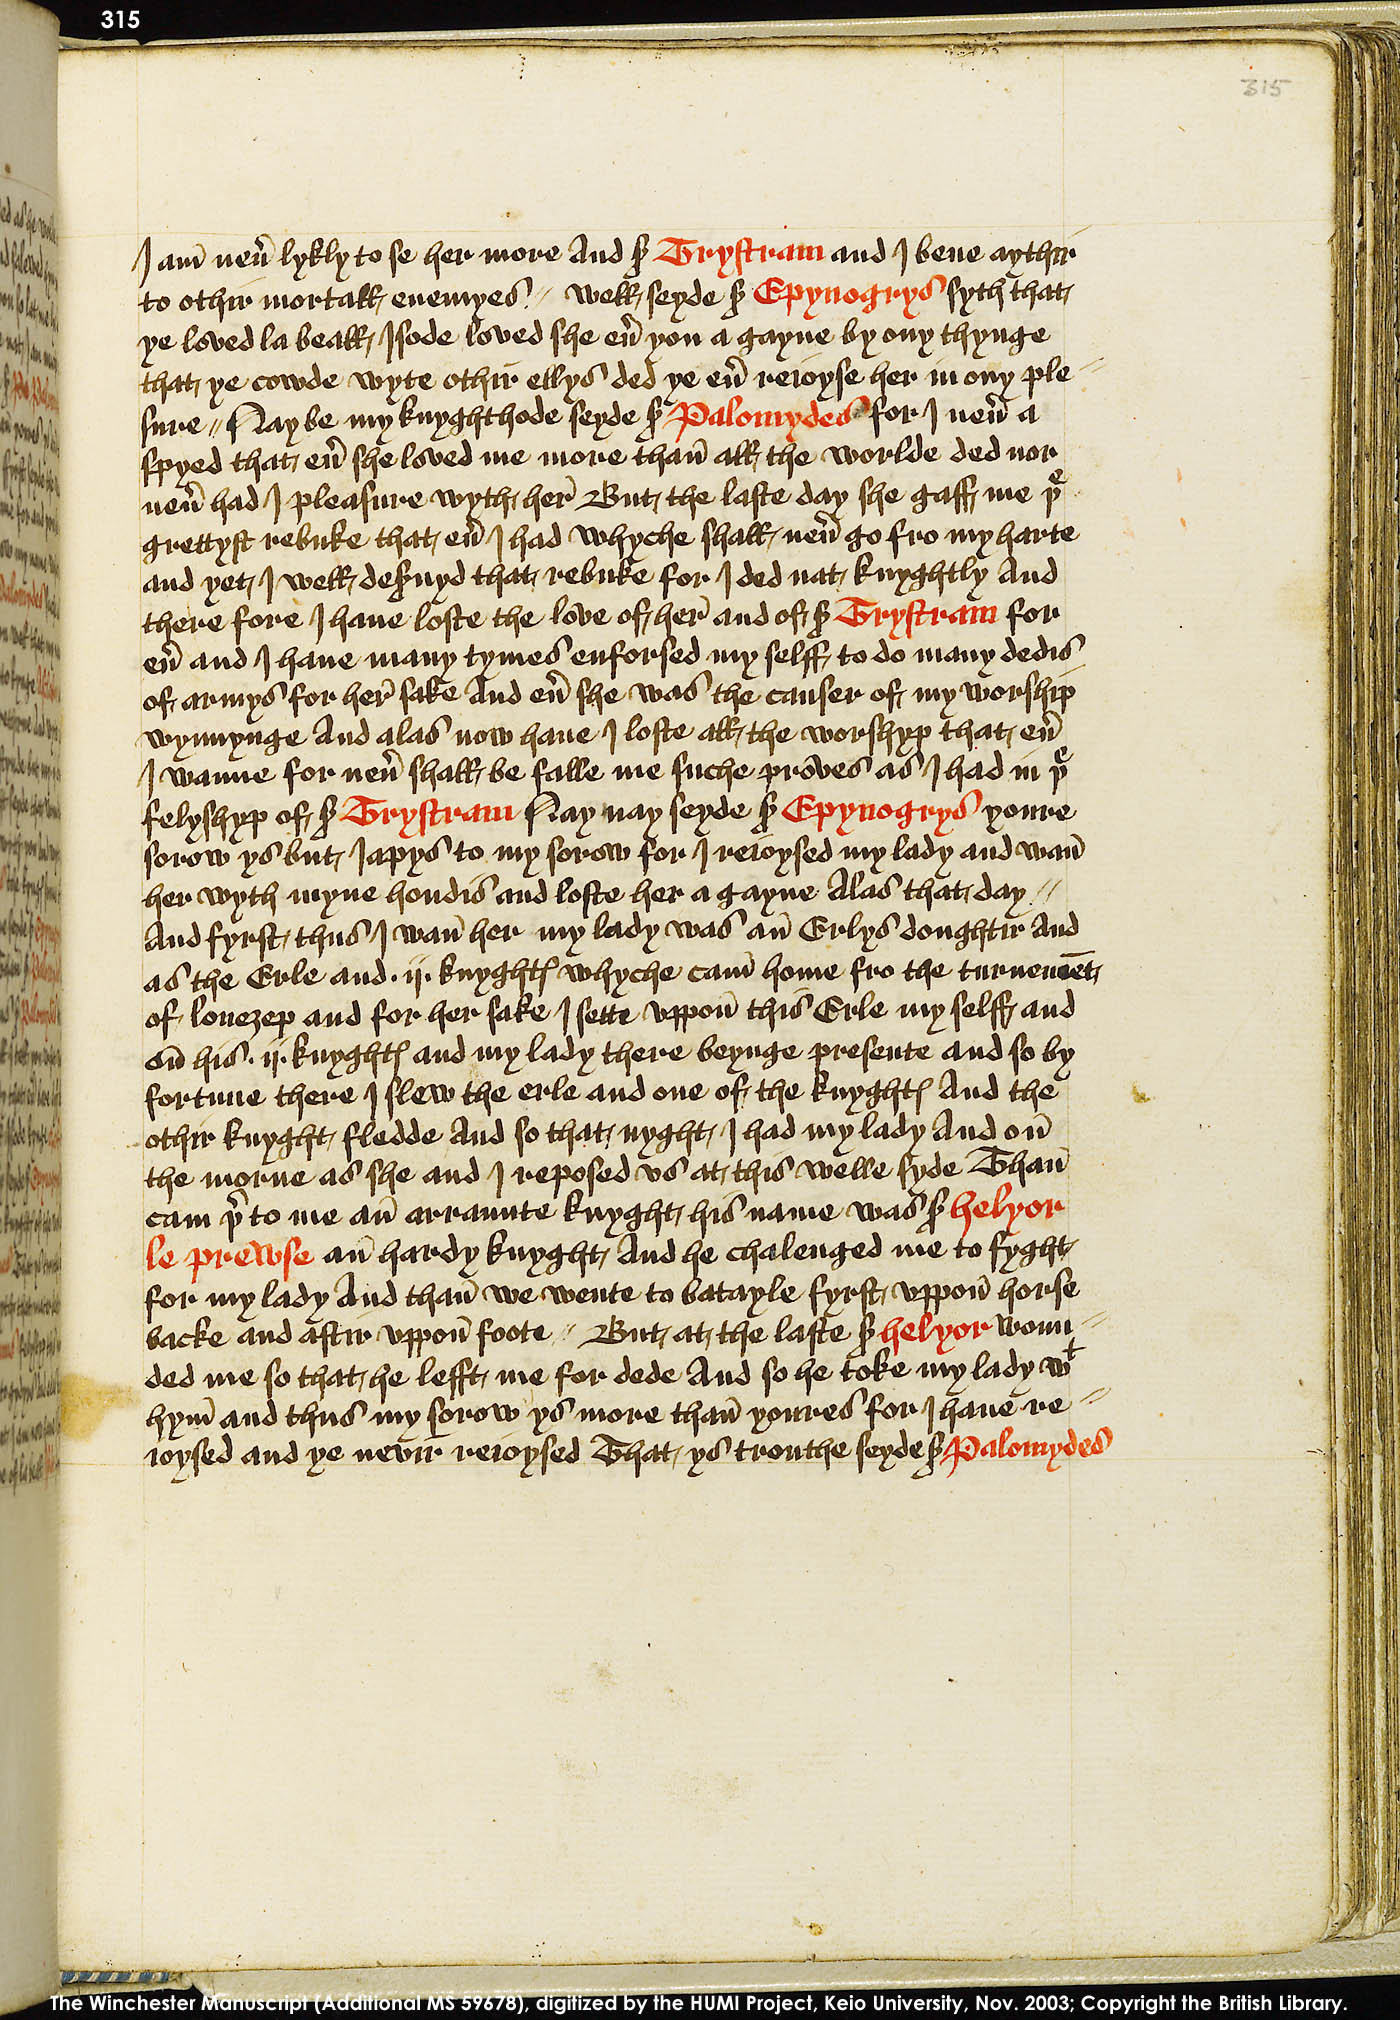 315
315
I am̄ neu̾ lykly to se her more And sᵉ Trystram and I bene aythir
to othir mortall enemyes // well seyde sᵉ Epynogrys syth that
ye loved la beall Isode loved she eu̾ you a gayne by ony thynge
that ye cowde wyte othir ellys ded ye eu̾ reioyse her in ony ple //
sure // Nay be my knyghthode seyde sᵉ Palomydes for I neu̾ a
spyed that eu̾ she loved me more than̄ all the worlde ded nor
neu̾ had I pleasure wyth her̄ But the laste day she gaff me þᵉ
grettyst rebuke that eu̾ I had whyche shall neu̾ go fro my harte
and yet I well desᵉuyd that rebuke for I ded nat knyghtly And
there fore I haue loste the love of her̄ and of sᵉ Trystram for
eu̾ and I haue many tymes enforsed my selff to do many dedis
of armys for her̄ sake And eu̾ she was the causer of my worship
wynnynge And alas now haue I loste all the worshyp that eu̾
I wanne for neu̾ shall be falle me suche prōves as I had in þᵉ
felyshyp of sᵉ Trystram Nay nay seyde sᵉ Epynogrys youre
sorow ys but Iapys to my sorow for I reioysed my lady and wan̄
her wyth myne hondis and loste her a gayne Alas that day //
And fyrst thus I wan̄ her my lady was an̄ Erlys doughtir And
as the Erle and .ij. knyghtꝭ whyche cam̄ home fro the turnemēt
of louezep and for her sake I sette vppon̄ this Erle my selff and
on̄ his .ij. knyghtꝭ and my lady there beynge presente and so by
fortune there I slew the erle and one of the knyghtꝭ And the
othir knyght fledde And so that nyght I had my lady And on̄
the morne as she and I reposed vs at this welle syde Than̄
cam þᵉ to me an̄ arraunte knyght his name was sᵉ helyor
le prewse an̄ hardy knyght And he chalenged me to fyght
for my lady And than̄ we wente to batayle fyrst vppon̄ horse
backe and aftir vppon̄ foote // But at the laste sᵉ helyor woun //
ded me so that he lefft me for dede And so he toke my lady wᵗ
hym̄ and thus my sorow ys more than̄ youres for I haue re //
ioysed and ye nevir reioysed That ys trouthe seyde sᵉ Palomydes
The Winchester Manuscript (Additional MS 59678), digitized by the HUMI Project, Keio University, Nov. 2003; Copyright the British Library.